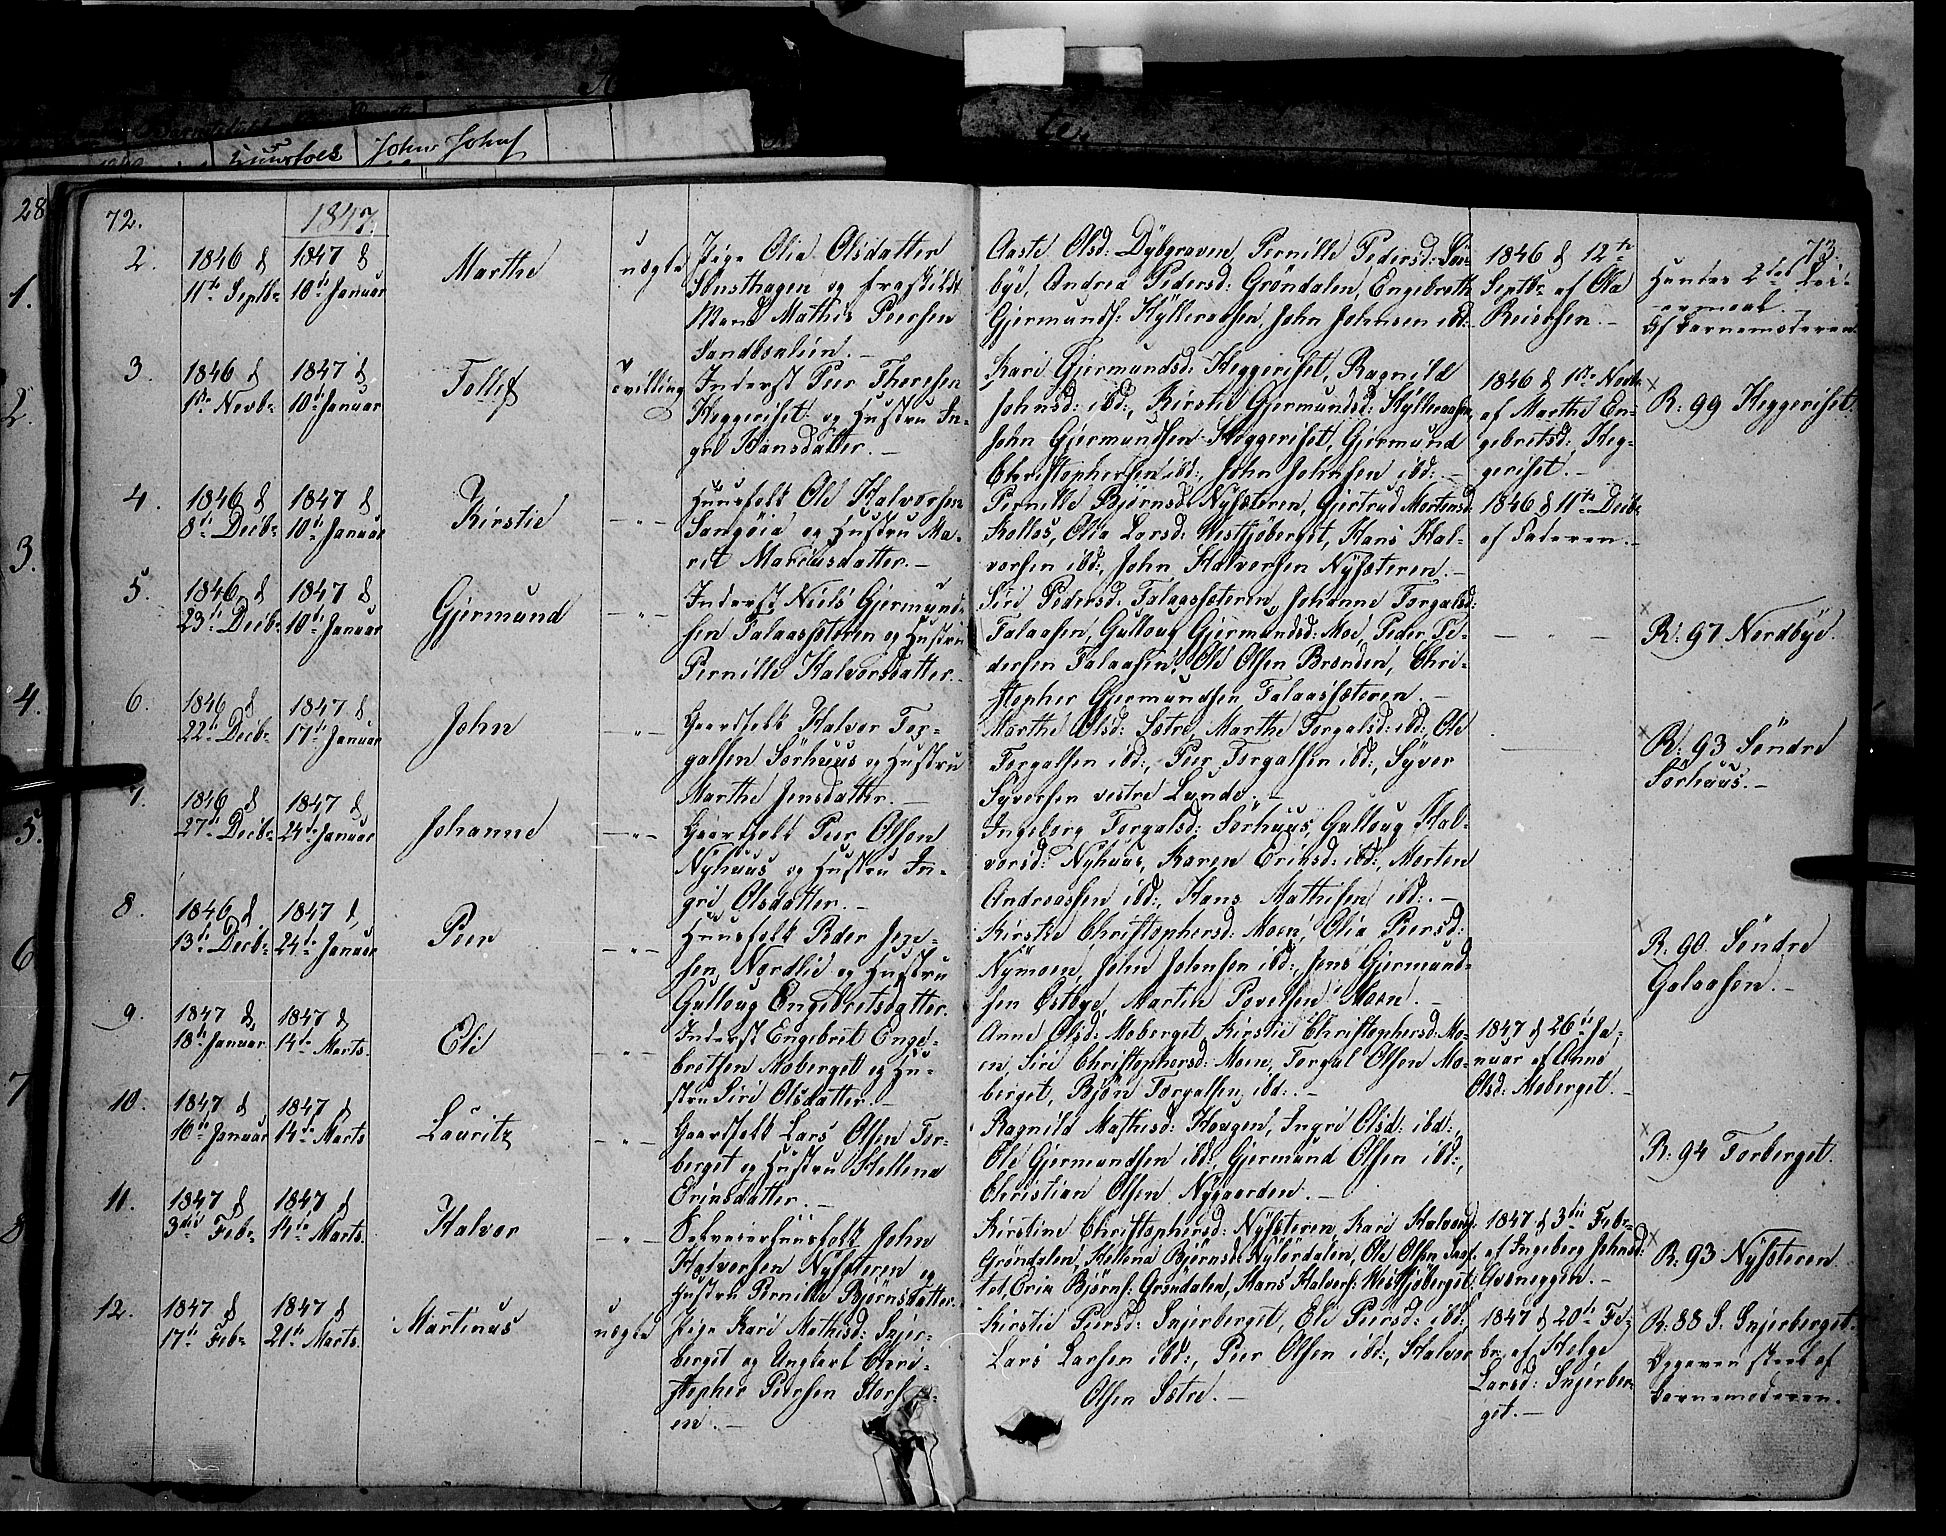 28
72.
1847.
73.
2.
1846 d
11te Septbr
1847 d
10de Januar
Marthe
uægte
Pige Olia Olsdatter
og fraskildt
Mand Mathis Peersen
Aaste Olsd: Dÿbgraven, Pernille Pedersd:
bÿe, Andrea Pedersd: Gröndalen, Engebreth
Gjermunds: Kÿlleraasen, John Johnsen ibd:
1846 d 12te
Septbr af Ola
Hendes 2det Lei-
ermaal.
Af Barnemoderen
3.
1846 d
1ste Novbr
1847 d
10de Januar
Tollef
Tvilling
Inderst Peer Thoresen
Heggeriset og Hustru In-
gri Hansdatter. —
Kari Gjermundsd: Heggeriset, Ragnild
Johnsd: ibd:, Kirstie Gjermundsd: Kÿlleraasen
John Gjermundsen Heggeriset, Gjermund
Christophersen ibd:, John Johnsen ibd: —
1846 d 1ste Novbr
af Marthe En-
gebretsd: Heg-
geriset. —
R: 99 Heggeriset.
4.
1846 d
8de Decbr
1847 d
10de Januar
Kirstie
— " —
Huusfolk Ole Halvorsen
Langöia og Hustru Ma-
rit Marcusdatter. —
Pernille Björnsd: Nÿsæteren, Gjertrud Mortensd:
Kolbos, Olia Larsd: Vestsjöberget, Hans Hal-
vorsen ibd:, John Halvorsen Nÿsæteren. —
1846 d 11te Decbr
af Faderen. —
5.
1846 d
23de Decbr
1847 d
10de Januar
Gjermund
— " —
Inderst Niels Gjermund-
sen Falaassæteren og Hustru
Pernille Halvorsdatter.
Siri Pedersd: Falaassæteren, Johanne Torgalsd:
Falaasen, Gulloug Gjermundsd: Moe, Peder Pe-
dersen Falaasen, Ole Olsen Brænden, Chri-
stopher Gjermundsen Falaassæteren. —
— " —
R: 97 Nordbÿe.
6.
1846 d
22de Decbr
1847 d
17de Januar
John
— " —
Gaardfolk Halvor Tor-
galsen Sörhuus og Hustru
Marthe Jensdatter. —
Marthe Olsd: Sætre, Marthe Torgalsd: ibd:, Ole
Torgalsen ibd:, Peer Torgalsen ibd:, Syver
Syversen vestre Lunde. —
R: 93 Söndre
Sörhuus. —
7.
1846 d
27de Decbr
1847 d
24de Januar
Johanne
— " —
Gaardfolk Peer Olsen
Nÿhuus og Hustru In-
gri Olsdatter. —
Ingeborg Torgalsd: Sörhuus, Gulloug Hal-
vorsd: Nÿhuus, Karen Eriksd: ibd:, Morten
Andreassen ibd:, Hans Mathisen ibd: —
8.
1846 d
13de Decbr
1847 d
24de Januar
Peer
— " —
Huusfolk Peder Jen-
sen Nordlie og Hustru
Gulloug Engebretsdatter.
Kirstie Christophersd: Moen, Olia Peersd:
Nÿmoen, John Johnsen ibd:, Jens Gjermund-
sen Östbye, Martin Povelsen Moen. —
R: 90. Söndre
Galaasen. —
9.
1847 d
18de Januar
1847 d
14de Marts.
Eli
— " —
Inderst Engebret Enge-
bretsen Moberget og Hu-
stru Siri Olsdatter. —
Anne Olsd: Moberget, Kirstie Christophersd: Mo-
en, Siri Christophersd: Moen, Torgal Olsen Mo-
berget, Björn Torgalsen ibd: —
1847 d 26de Ja-
nuar af Anne
Olsd: Moberget. —
10.
1847 d
16de Januar
1847 d
14de Marts
Lauritz
— " —
Gaardfolk Lars Olsen Tor-
berget og Hustru Hellena
Erinsdatter. —
Ragnild Mathisd: Haugen, Ingri Olsd: ibd:,
Ole Gjermundsen ibd:, Gjermund Olsen ibd:,
Christian Olsen Nygaarden. —
R: 94 Torberget.
11.
1847 d
3die Febr
1847 d
14de Marts.
Halvor
— " —
Selveierhuusfolk John
Halvorsen Nÿsæteren og
Hustru Pernille Björnsdatter.
Kirstine Christophersd: Nÿsæteren, Kari Halvorsd:
Gröndalen, Hellena Björnsd: Nÿlördalen, Ole Olsen
tet, Erin Björns: Gröndalen, Hans Halvors: Vestsjöberget.
1847 d 3die Febr
af Ingeborg Johnsd:
R: 93 Nÿsæteren.
12.
1847 d
17de Febr
1847 d
21de Marts.
Martinus
uægte
Pige Kari Mathisd: Snjer-
berget og Ungkarl Chri-
stopher Peersen
en. —
Kirstie Peersd: Snjerberget, Eli Peersd: ibd:,
Lars Larsen ibd:, Peer Olsen ibd:, Halvor
Olsen Sætre. —
1847 d 20de Fe-
br. af Helge
Larsd: Snjerber-
get. —
R: 88 S. Snjerberget.
Opgaven skeet af
Barnemoderen.
1.
2.
3.
4.
5.
6
7
8